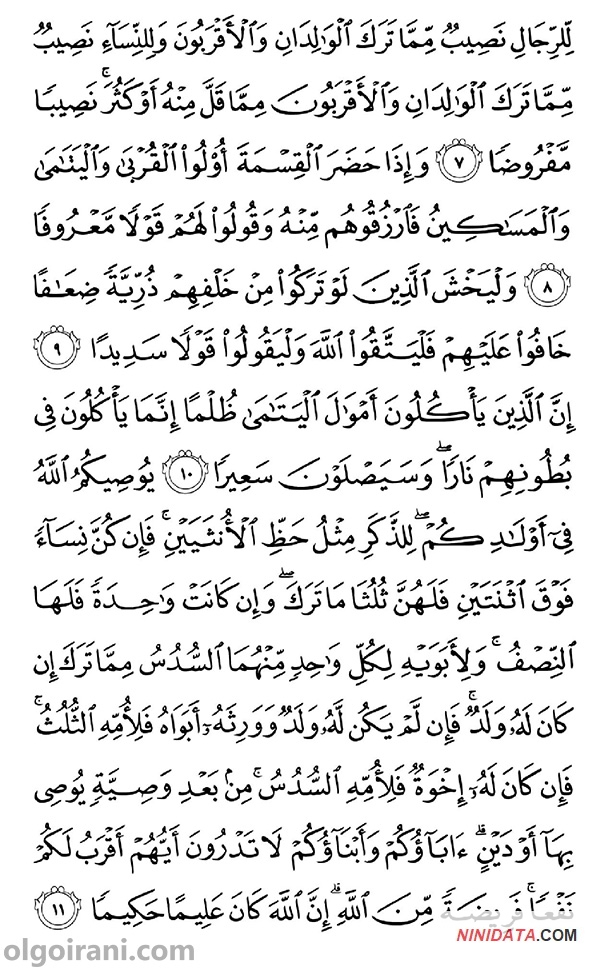 لِّلرِّجَالِ نَصِيبٌ مِّمَّا تَرَكَ ٱلْوَٰلِدَانِ وَٱلْأَقْرَبُونَ وَلِلنِّسَآءِ نَصِيبٌ
مِّمَّا تَرَكَ ٱلْوَٰلِدَانِ وَٱلْأَقْرَبُونَ مِمَّا قَلَّ مِنْهُ أَوْ كَثُرَ ۚ نَصِيبًا
مَّفْرُوضًا ٧ وَإِذَا حَضَرَ ٱلْقِسْمَةَ أُو۟لُوا۟ ٱلْقُرْبَىٰ وَٱلْيَتَٰمَىٰ
وَٱلْمَسَٰكِينُ فَٱرْزُقُوهُم مِّنْهُ وَقُولُوا۟ لَهُمْ قَوْلًا مَّعْرُوفًا
٨ وَلْيَخْشَ ٱلَّذِينَ لَوْ تَرَكُوا۟ مِنْ خَلْفِهِمْ ذُرِّيَّةً ضِعَٰفًا
خَافُوا۟ عَلَيْهِمْ فَلْيَتَّقُوا۟ ٱللَّهَ وَلْيَقُولُوا۟ قَوْلًا سَدِيدًا ٩
إِنَّ ٱلَّذِينَ يَأْكُلُونَ أَمْوَٰلَ ٱلْيَتَٰمَىٰ ظُلْمًا إِنَّمَا يَأْكُلُونَ فِى
بُطُونِهِمْ نَارًا ۖ وَسَيَصْلَوْنَ سَعِيرًا ١٠ يُوصِيكُمُ ٱللَّهُ
فِىٓ أَوْلَٰدِكُمْ ۖ لِلذَّكَرِ مِثْلُ حَظِّ ٱلْأُنثَيَيْنِ ۚ فَإِن كُنَّ نِسَآءً
فَوْقَ ٱثْنَتَيْنِ فَلَهُنَّ ثُلُثَا مَا تَرَكَ ۖ وَإِن كَانَتْ وَٰحِدَةً فَلَهَا
ٱلنِّصْفُ ۚ وَلِأَبَوَيْهِ لِكُلِّ وَٰحِدٍ مِّنْهُمَا ٱلسُّدُسُ مِمَّا تَرَكَ إِن
كَانَ لَهُۥ وَلَدٌ ۚ فَإِن لَّمْ يَكُن لَّهُۥ وَلَدٌ وَوَرِثَهُۥٓ أَبَوَاهُ فَلِأُمِّهِ ٱلثُّلُثُ ۚ
فَإِن كَانَ لَهُۥٓ إِخْوَةٌ فَلِأُمِّهِ ٱلسُّدُسُ ۚ مِنۢ بَعْدِ وَصِيَّةٍ يُوصِى
بِهَآ أَوْ دَيْنٍ ۗ ءَابَآؤُكُمْ وَأَبْنَآؤُكُمْ لَا تَدْرُونَ أَيُّهُمْ أَقْرَبُ لَكُمْ
نَفْعًا ۚ فَرِيضَةً مِّنَ ٱللَّهِ ۗ إِنَّ ٱللَّهَ كَانَ عَلِيمًا حَكِيمًا ١١
NINIDATA.COM
olgoirani.com